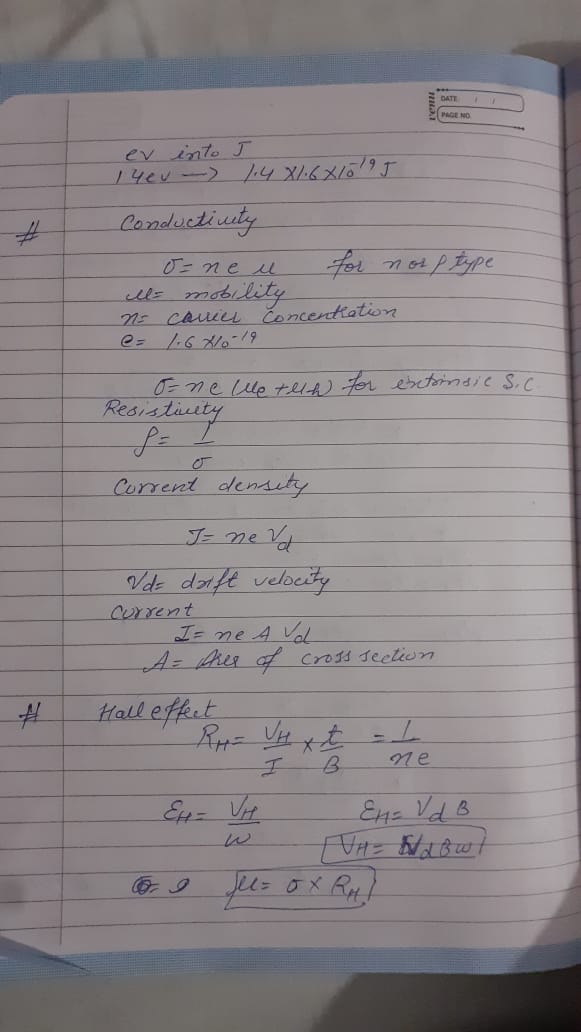 venus
DATE: / /
PAGE NO.
ev into J
1.4ev —> 1.4 X1.6 X10^-19 J
# Conductivity
σ= n e μ for n or p type
μ= mobility
n= carrier concentration
e= 1.6 X10^-19
σ= ne (μe +μh) for extrinsic S.C
Resistivity
ρ= 1/σ
Current density
J= ne Vd
Vd= drift velocity
Current
I= ne A Vd
A= Area of cross section
# Hall effect
RH= VH/I x t/B = 1/ne
EH= VH/w EH= Vd B
VH= Vd Bw
μ= σ x RH